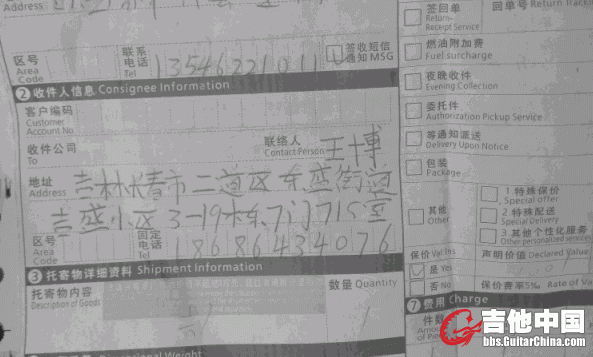 地址
Address
签回单
Return-
Receipt Service
回单号 Return Tracki
燃油附加费
Fuel surcharge
区号
Area
Code
联系
电话
Tel
13546221011
签收短信
通知 MSG
夜晚收件
Evening Collection
2 收件人信息 Consignee Information
委托件
Authorization Pickup Service
客户编码
Customer
Account No
等通知派送
Delivery Upon Notice
收件公司
To
联络人
Contact Person
王博
包装
Package
地址
Address
吉林长春市二道区东盛街道
吉盛小区3-19栋7门715室
1.特殊保价
Special offer
2.特殊配送
Special Delivery
3.其他个性化服务
Other personalized services
其他
Other
区号
Area
Code
固定
电话
Tel
18686434076
保价 Val Ins
声明价值 Declared Value
是 Yes
否 No
保价费率5‰ Rate of Va
3 托寄物详细资料 Shipment Information
托寄物内容
Description of Goods
数量 Quantity
1
7 费用 Charge
件数
吉他中国
bbs.GuitarChina.com